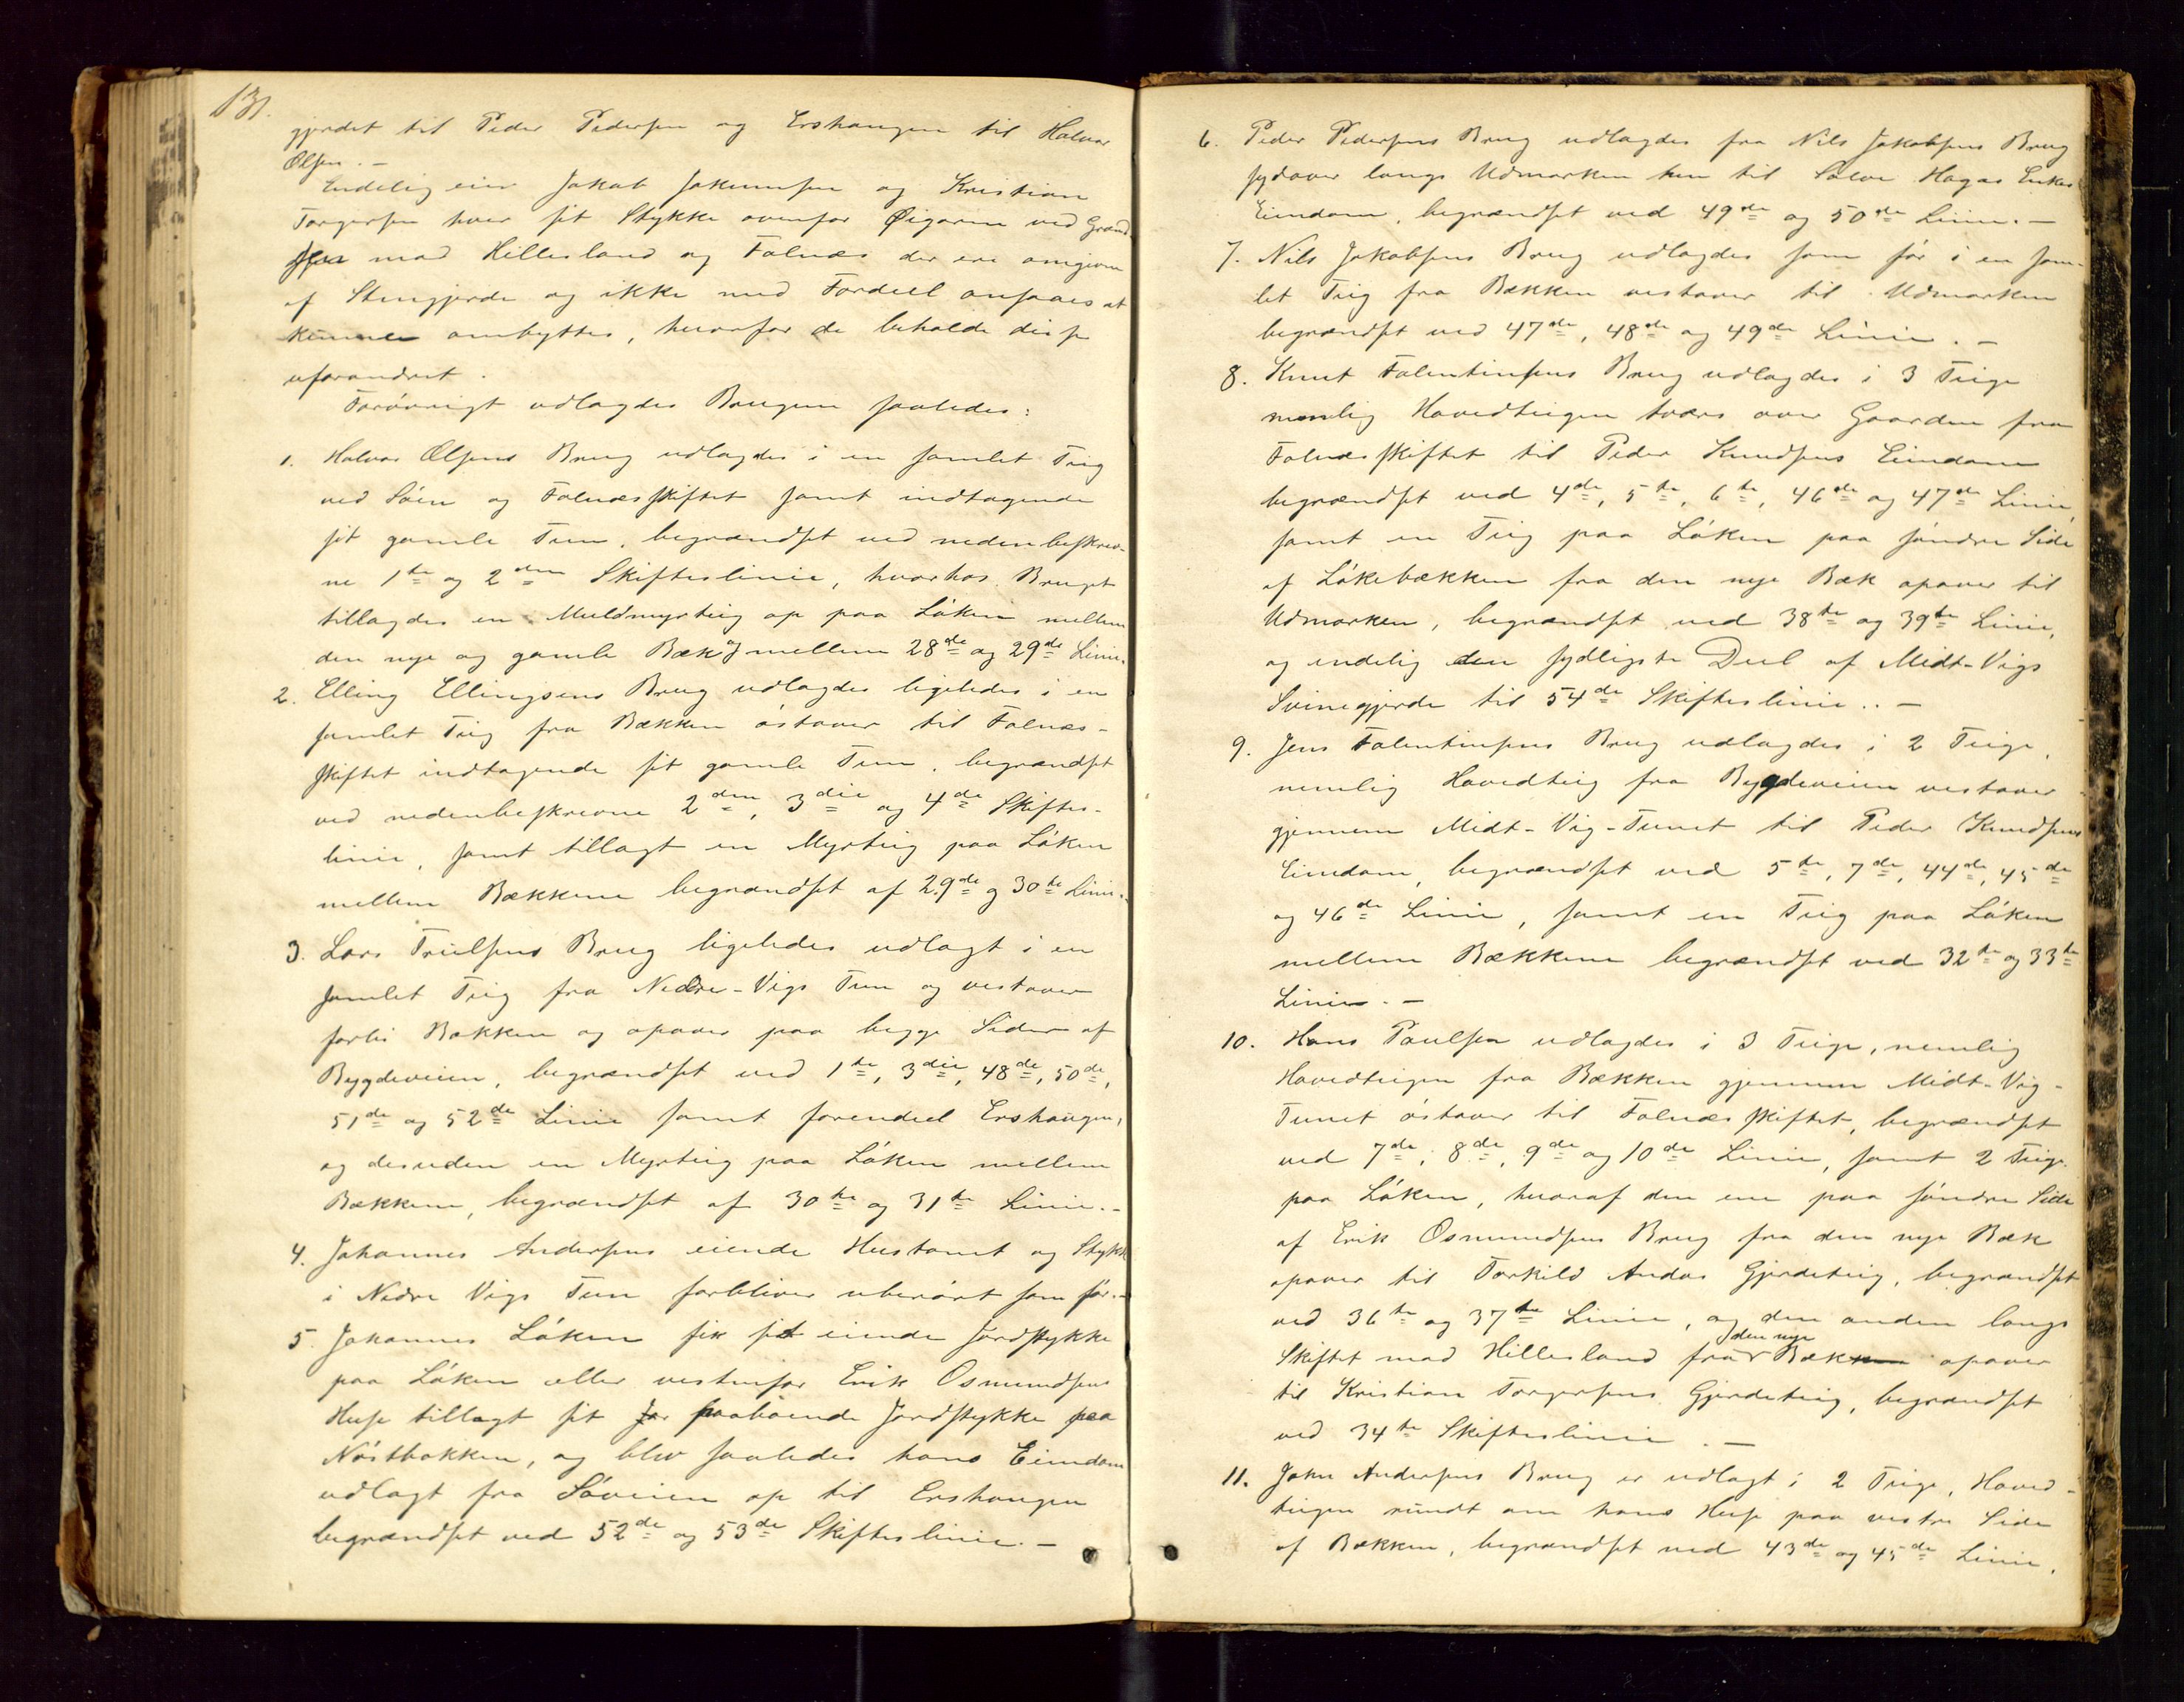 131.
gjerdet til Peder Pedersen og Ershaugen til Halvor
Olsen. –
Endelig eier Jakob Jakumsen og Kristian
Torgersen hver sit Stykke ovenfor Øigaren ved Grænd-
sen mod Hillesland og Falnæs der ere omgivne
af Stengjerde og ikke med Fordeel ansaaes at
kunne ombyttes, hvorfor de beholde disse
uforandret.
Forøvrigt udlagdes Brugene saaledes:
1. Halvor Olsens Brug udlagdes i en samlet Teig
ved Søen og Falnæsskiftet samt indtagende
sit gamle Tun, begrændset ved nedenbeskrev-
ne 1ste og 2den Skifteslinie, hvorhos Bruget
tillagdes en Muldmyrteig op paa Løken mellem
den nye og gamle Bæk og mellem 28de og 29de Linie.
2. Elling Ellingsens Brug udlagdes ligeledes i en
samlet Teig fra Bækken østover til Falnæs-
skiftet indtagende sit gamle Tun, begrændset
ved nedenbeskrevne 2den, 3die og 4de Skiftes-
linie, samt tillagt en Myrteig paa Løken
mellem Bækkene begrændset af 29de og 30te Linie.
3. Lars Trulsens Brug ligeledes udlagt i en
samlet Teig fra Nedre-Vigs Tun og vestover
forbi Bakken og opover paa begge Sider af
Bygdeveien, begrændset ved 1te, 3die, 48de, 50de,
51de og 52de Linie samt forendeel Ershaugen,
og desuden en Myrteig paa Løken mellem
Bækkene, begrændset af 30te og 31te Linie. –
4. Johannes Andersens eiende Hustomt og Stykke
i Nedre Vigs Tun forbliver uberørt som før. –
5. Johannes Løken fik sit eiende Jordstykke
paa Løken eller vestenfor Erik Osmundsens
Huse tillagt sit paaboende Jordstykke paa
Nøstbakken, og blev saaledes hans Eiendom
udlagt fra Søveien op til Ershaugen
begrændset ved 52de og 53de Skifteslinie. –
6. Peder Pedersens Brug udlagdes fra Nils Jakobsens Brug
sydover langs Udmarken hen til Salve Hagas Enkes
Eiendom, begrændset ved 49de og 50de Linie. –
7. Nils Jakobsens Brug udlagdes som før i en sam-
let Teig fra Bækken vestover til Udmarken
begrændset ved 47de, 48de og 49de Linie. –
8. Knut Falentinsens Brug udlagdes i 3 Teige
nemlig Hovedteigen tværs over Gaarden fra
Falnæsskiftet til Peder Knudsens Eiendom
begrændset ved 4de, 5te, 6te, 46de og 47de Linie,
samt en Teig paa Løken paa søndre Side
af Løkebækken fra den nye Bæk opover til
Udmarken, begrændset ved 38te og 39te Linie,
og endelig den sydligste Deel af Midt-Vigs
Svinegjerde til 54de Skifteslinie. –
9. Jens Falentinsens Brug udlagdes i 2 Teige,
nemlig Hovedteig fra Bygdeveien vestover
gjennem Midt-Vig-Tunet til Peder Knudsens
Eiendom, begrændset ved 5te, 7de, 44de, 45de
og 46de Linie, samt en Teig paa Løken
mellem Bækkene begrændset ved 32te og 33te
Linie. –
10. Hans Paulsen udlagdes i 3 Teige, nemlig
Hovedteigen fra Bækken gjennem Midt-Vig-
Tunet østover til Falnæsskiftet, begrændset
ved 7de, 8de, 9de og 10de Linie, samt 2 Teige
paa Løken, hvoraf den ene paa søndre Side
af Erik Osmundsens Brug fra den nye Bæk
opover til Torkild Andas Gjerdeteig, begrændset
ved 36te og 37te Linie, og den anden langs
Skiftet mod Hillesland fra den nye Bæk opover
til Kristian Torgersens Gjerdeteig, begrændset
ved 34te Skifteslinie. –
11. John Andersens Brug er udlagt i 2 Teige, Hoved-
teigen rundt om hans Huse paa vestre Side
af Bækken, begrændset ved 43de og 45de Linie,